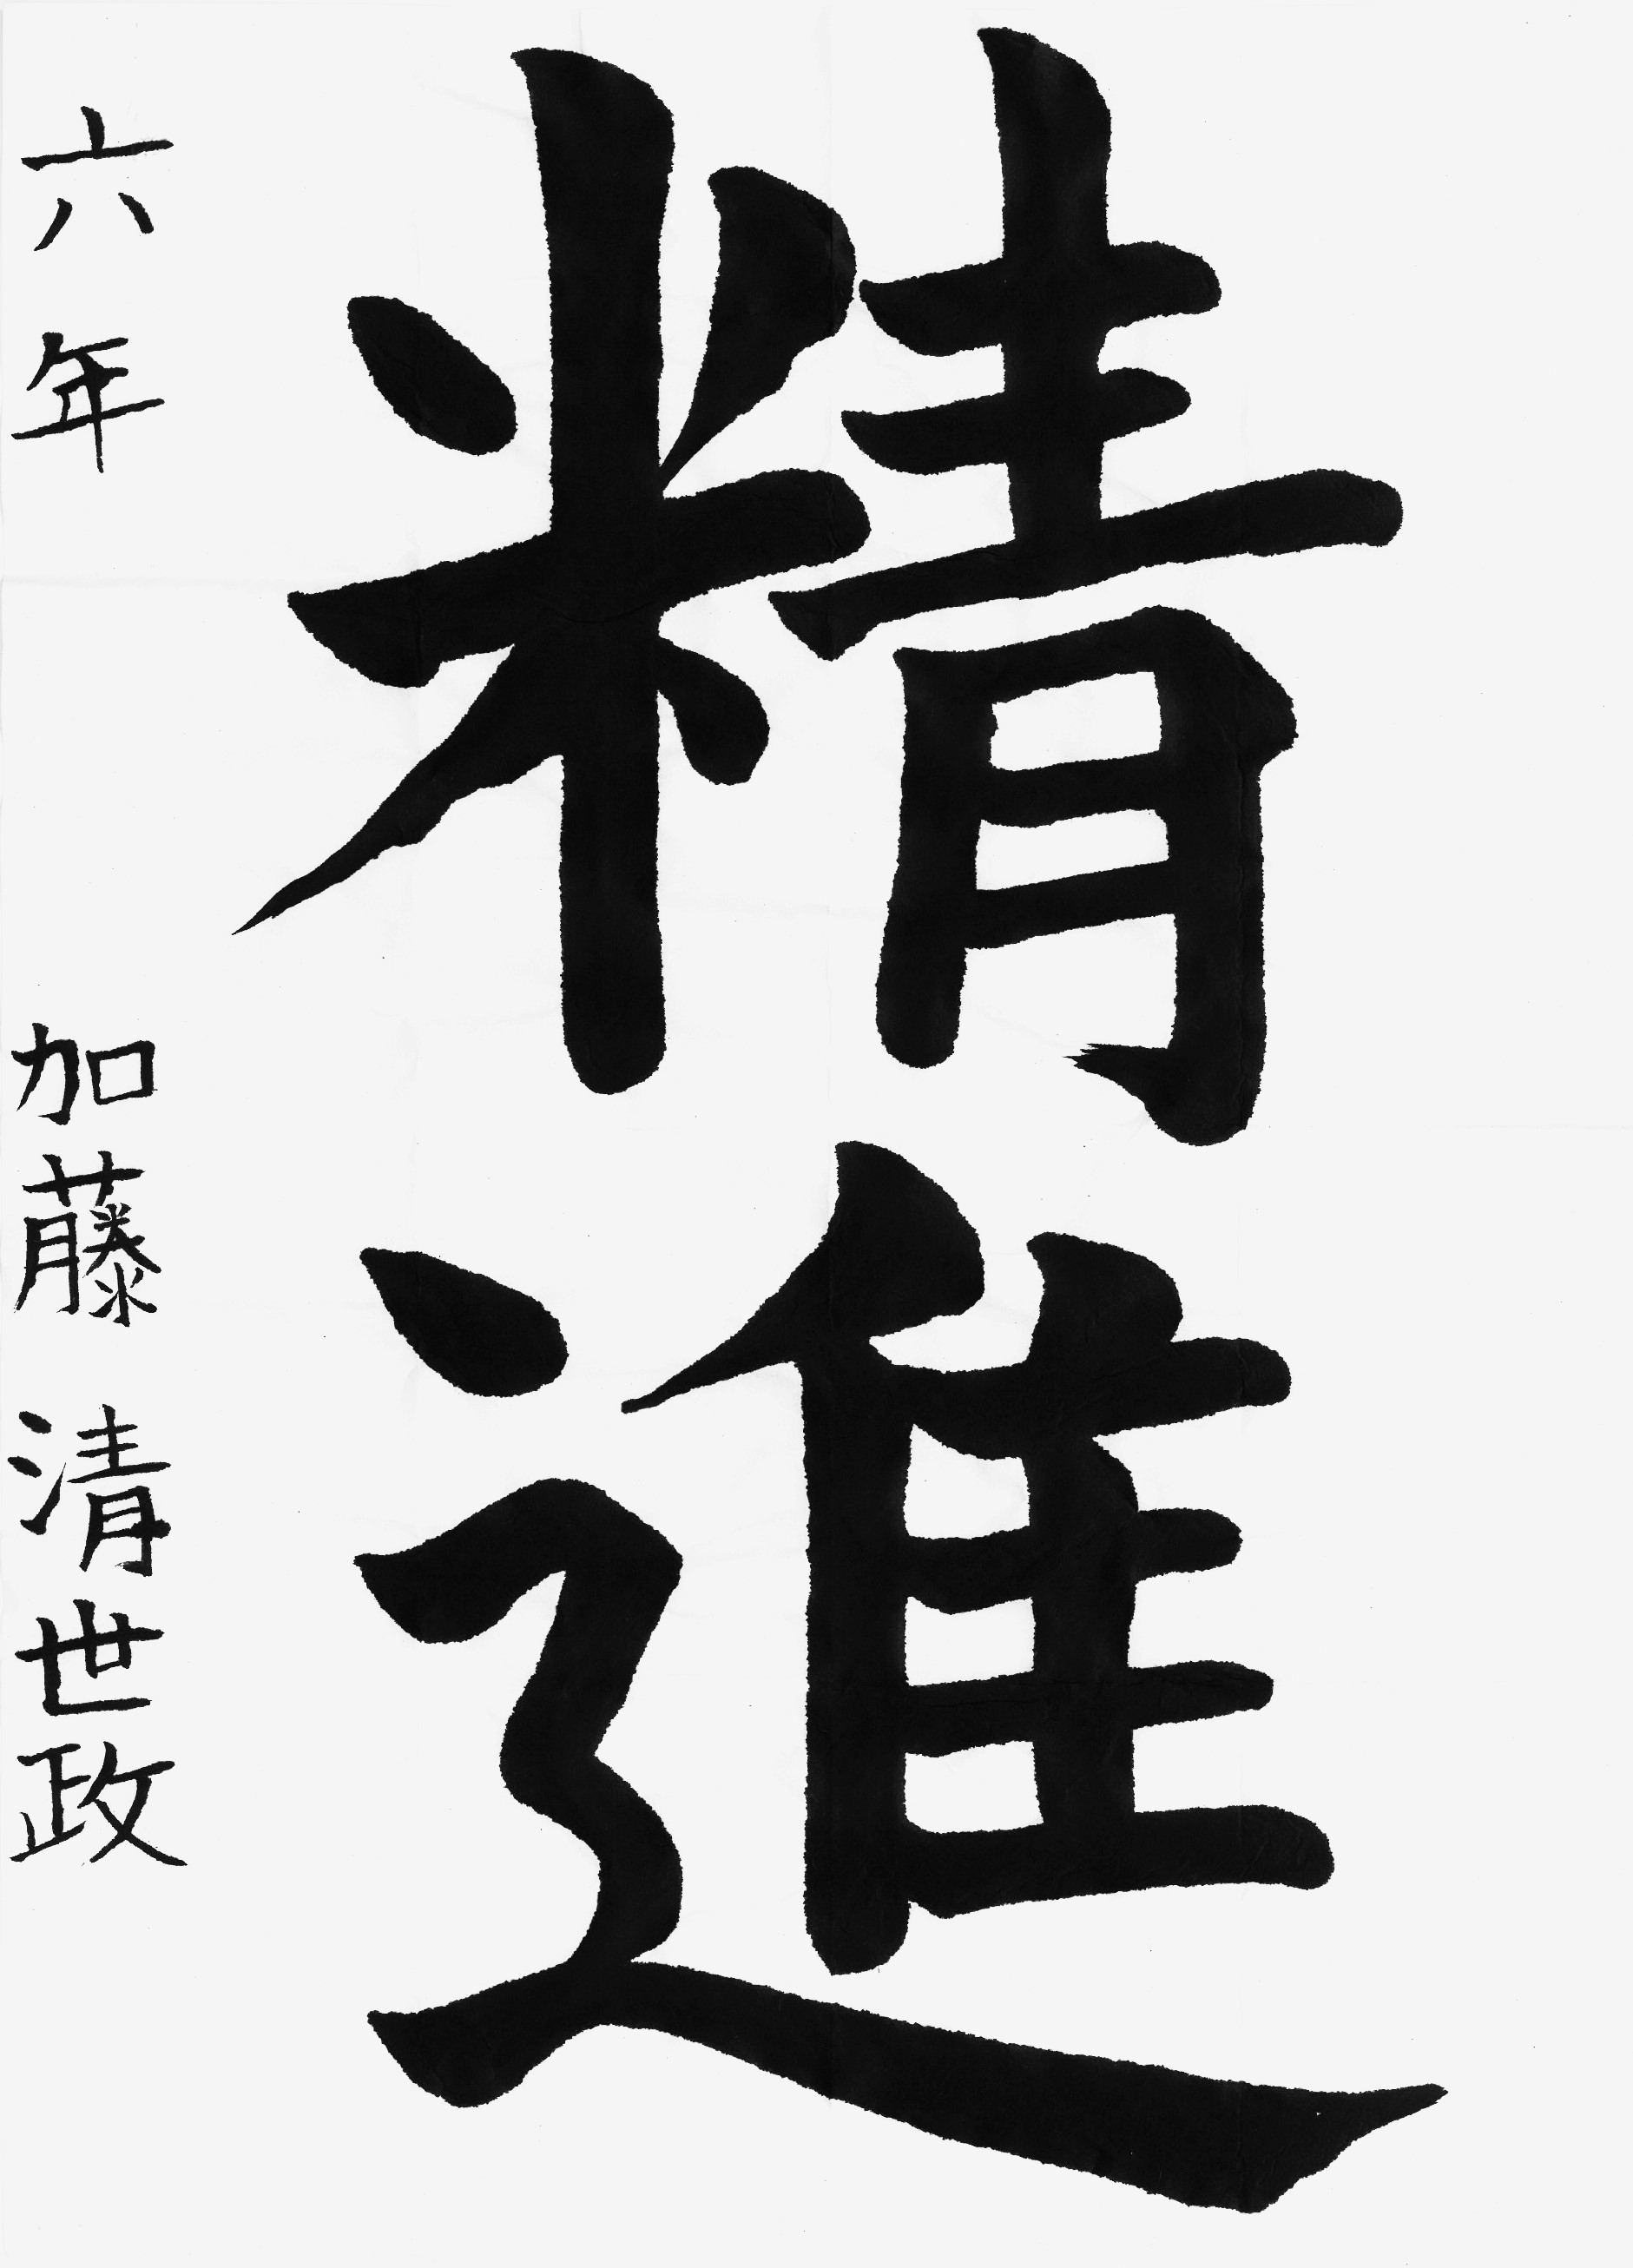 精進
六年 加藤清世政